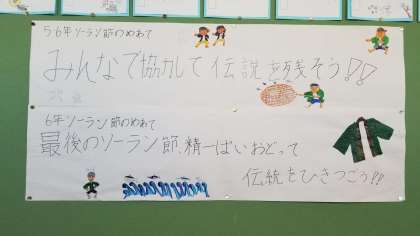 5・6年ソーラン節のめあて
みんなで協力して伝説を残そう!!
6年ソーラン節のめあて
最後のソーラン節、精一ぱいおどって
伝統をひきつごう!!